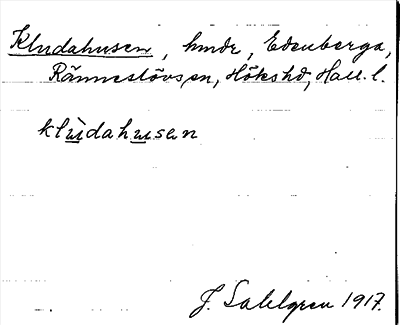 Kludahusen, hmdr, Edenberga,
Ränneslövs sn, Hökshd, Hall. l.
klùdahusan
J. Sahlgren 1917.